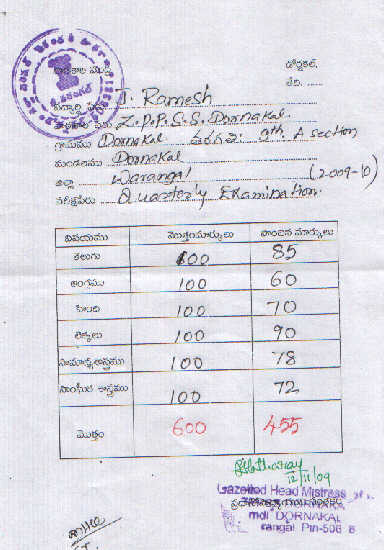 డోర్నకల్.
తేది. .....
T. Ramesh
Z.P.P.S.S. Dornakal
గ్రామము Dornakal తరగతి: 9th. A section
మండలము Dornakal
జిల్లా Warangal (2009-10)
పరీక్షపేరు Quarterly Examination.
విషయము మొత్తంమార్కులు పొందిన మార్కులు
తెలుగు 100 85
ఆంగ్లము 100 60
హింది 100 70
లెక్కలు 100 90
సామాన్యశాస్త్రము 100 78
సాంఘీక శాస్త్రము 100 72
మొత్తం 600 455
12/11/09
Gazetted Head Mistress
mdl DORNAKAL
rangal Pin-506